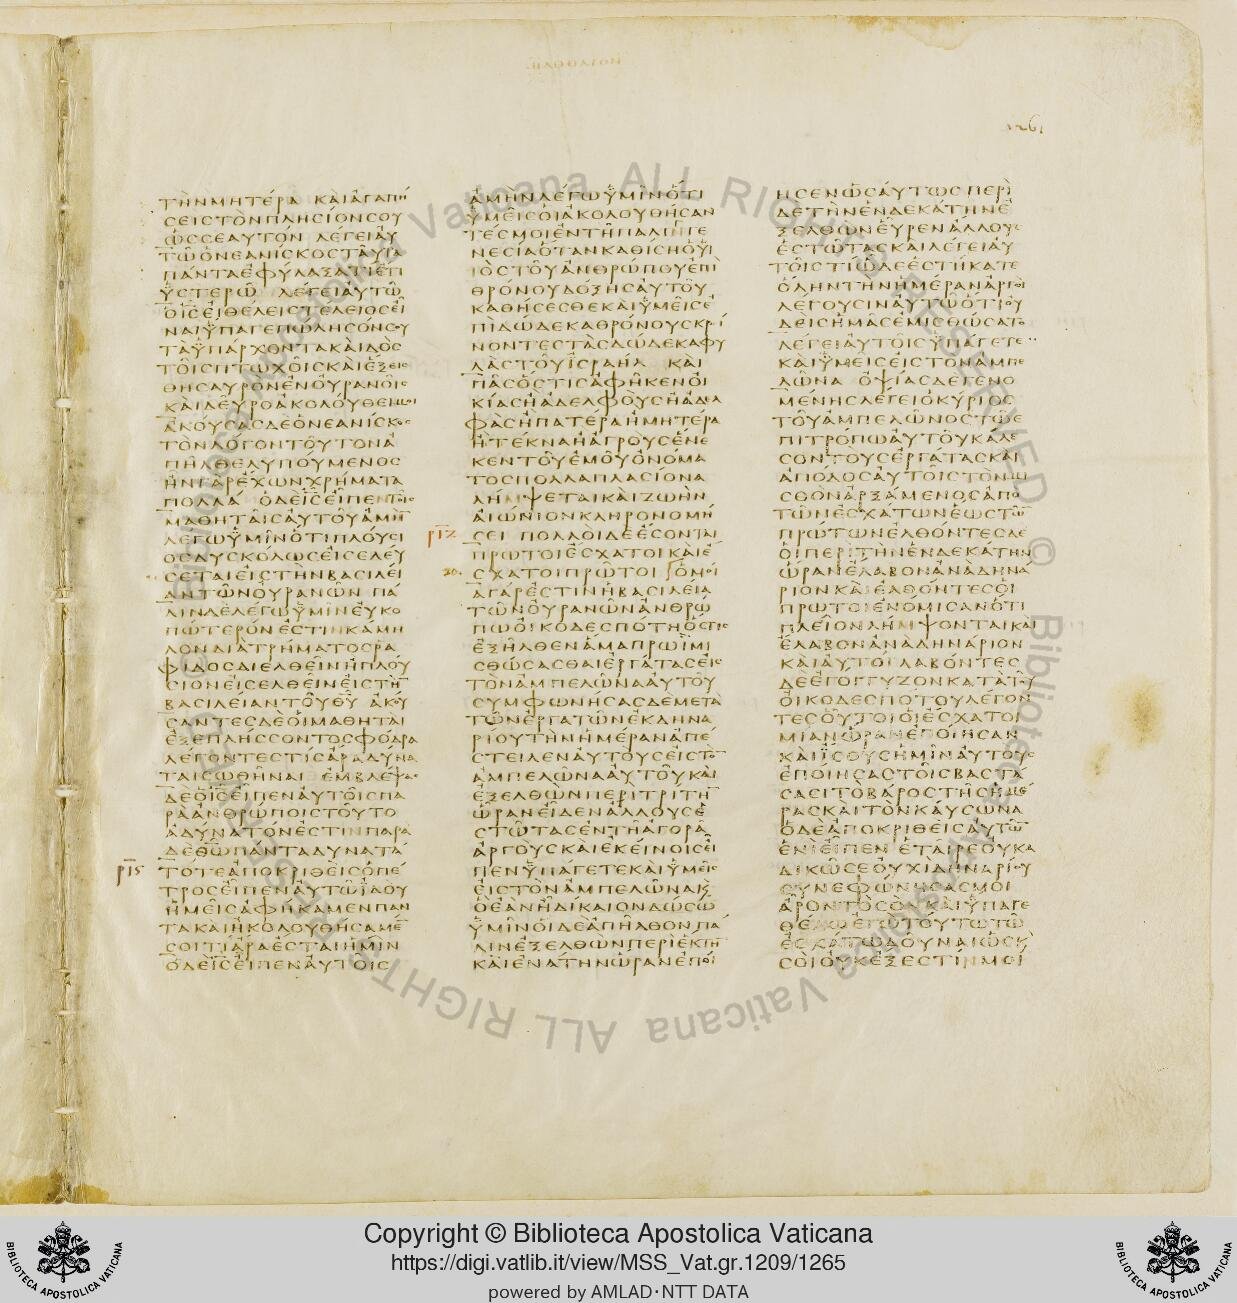 1261
ΤΗΝΜΗΤΕΡΑ ΚΑΙΑΓΑΠΗ
ΣΕΙΣΤΟΝΠΛΗΣΙΟΝΣΟΥ
ΩΣΣΕΑΥΤΟΝ ΛΕΓΕΙΑΥ
ΤΩΟΝΕΑΝΙΣΚΟΣΤΑΥΤΑ
ΠΑΝΤΑΕΦΥΛΑΞΑΤΙΕΤΙ
ΥΣΤΕΡΩ ΛΕΓΕΙΑΥΤΩ
ΟΙΣΕΙΘΕΛΕΙΣΤΕΛΕΙΟΣΕΙ
ΝΑΙΥΠΑΓΕΠΩΛΗΣΟΝΣΟΥ
ΤΑΥΠΑΡΧΟΝΤΑΚΑΙΔΟΣ
ΤΟΙΣΠΤΩΧΟΙΣΚΑΙΕΞΕΙΣ
ΘΗΣΑΥΡΟΝΕΝΟΥΡΑΝΟΙΣ
ΚΑΙΔΕΥΡΟΑΚΟΛΟΥΘΕΙΜΟΙ
ΑΚΟΥΣΑΣΔΕΟΝΕΑΝΙΣΚΟΣ
ΤΟΝΛΟΓΟΝΤΟΥΤΟΝΑ
ΠΗΛΘΕΛΥΠΟΥΜΕΝΟΣ
ΗΝΓΑΡΕΧΩΝΧΡΗΜΑΤΑ
ΠΟΛΛΑ ΟΔΕΙΣΕΙΠΕΝΤΟΙΣ
ΜΑΘΗΤΑΙΣΑΥΤΟΥΑΜΗ
ΛΕΓΩΥΜΙΝΟΤΙΠΛΟΥΣΙ
ΟΣΔΥΣΚΟΛΩΣΕΙΣΕΛΕΥ
ΣΕΤΑΙΕΙΣΤΗΝΒΑΣΙΛΕΙ
ΑΝΤΩΝΟΥΡΑΝΩΝ ΠΑ
ΛΙΝΔΕΛΕΓΩΥΜΙΝΕΥΚΟ
ΠΩΤΕΡΟΝΕΣΤΙΝΚΑΜΗ
ΛΟΝΔΙΑΤΡΗΜΑΤΟΣΡΑ
ΦΙΔΟΣΔΙΕΛΘΕΙΝΗΠΛΟΥ
ΣΙΟΝΕΙΣΕΛΘΕΙΝΕΙΣΤΗ
ΒΑΣΙΛΕΙΑΝΤΟΥΘΥ ΑΚΟΥ
ΣΑΝΤΕΣΔΕΟΙΜΑΘΗΤΑΙ
ΕΞΕΠΛΗΣΣΟΝΤΟΣΦΟΔΡΑ
ΛΕΓΟΝΤΕΣΤΙΣΑΡΑΔΥΝΑ
ΤΑΙΣΩΘΗΝΑΙ ΕΜΒΛΕΨΑΣ
ΔΕΟΙΣΕΙΠΕΝΑΥΤΟΙΣΠΑ
ΡΑΑΝΘΡΩΠΟΙΣΤΟΥΤΟ
ΑΔΥΝΑΤΟΝΕΣΤΙΝΠΑΡΑ
ΔΕΘΩΠΑΝΤΑΔΥΝΑΤΑ
ΤΟΤΕΑΠΟΚΡΙΘΕΙΣΟΠΕ
ΤΡΟΣΕΙΠΕΝΑΥΤΩΙΔΟΥ
ΗΜΕΙΣΑΦΗΚΑΜΕΝΠΑΝ
ΤΑΚΑΙΗΚΟΛΟΥΘΗΣΑΜΕ
ΣΟΙΤΙΑΡΑΕΣΤΑΙΗΜΙΝ
ΟΔΕΙΣΕΙΠΕΝΑΥΤΟΙΣ
ΑΜΗΝΛΕΓΩΥΜΙΝΟΤΙ
ΥΜΕΙΣΟΙΑΚΟΛΟΥΘΗΣΑΝ
ΤΕΣΜΟΙΕΝΤΗΠΑΛΙΝΓΕ
ΝΕΣΙΑΟΤΑΝΚΑΘΙΣΗΟΥΙ
ΙΟΣΤΟΥΑΝΘΡΩΠΟΥΕΠΙ
ΘΡΟΝΟΥΔΟΞΗΣΑΥΤΟΥ
ΚΑΘΗΣΕΣΘΕΚΑΙΥΜΕΙΣΕ
ΠΙΔΩΔΕΚΑΘΡΟΝΟΥΣΚΡΙ
ΝΟΝΤΕΣΤΑΣΔΩΔΕΚΑΦΥ
ΛΑΣΤΟΥΙΣΡΑΗΛ ΚΑΙ
ΠΑΣΟΣΤΙΣΑΦΗΚΕΝΟΙ
ΚΙΑΣΗΑΔΕΛΦΟΥΣΗΑΔΕΛ
ΦΑΣΗΠΑΤΕΡΑΗΜΗΤΕΡΑ
ΗΤΕΚΝΑΗΑΓΡΟΥΣΕΝΕ
ΚΕΝΤΟΥΕΜΟΥΟΝΟΜΑ
ΤΟΣΠΟΛΛΑΠΛΑΣΙΟΝΑ
ΛΗΜΨΕΤΑΙΚΑΙΖΩΗΝ
ΑΙΩΝΙΟΝΚΛΗΡΟΝΟΜΗ
ΣΕΙ ΠΟΛΛΟΙΔΕΕΣΟΝΤΑΙ
ΠΡΩΤΟΙΕΣΧΑΤΟΙΚΑΙΕ
ΣΧΑΤΟΙΠΡΩΤΟΙ ΟΜΟΙ
ΑΓΑΡΕΣΤΙΝΗΒΑΣΙΛΕΙΑ
ΤΩΝΟΥΡΑΝΩΝΑΝΘΡΩ
ΠΩΟΙΚΟΔΕΣΠΟΤΗΟΣΤΙΣ
ΕΞΗΛΘΕΝΑΜΑΠΡΩΙΜΙ
ΣΘΩΣΑΣΘΑΙΕΡΓΑΤΑΣΕΙΣ
ΤΟΝΑΜΠΕΛΩΝΑΑΥΤΟΥ
ΣΥΜΦΩΝΗΣΑΣΔΕΜΕΤΑ
ΤΩΝΕΡΓΑΤΩΝΕΚΔΗΝΑ
ΡΙΟΥΤΗΝΗΜΕΡΑΝΑΠΕ
ΣΤΕΙΛΕΝΑΥΤΟΥΣΕΙΣΤΟ
ΑΜΠΕΛΩΝΑΑΥΤΟΥΚΑΙ
ΕΞΕΛΘΩΝΠΕΡΙΤΡΙΤΗ
ΩΡΑΝΕΙΔΕΝΑΛΛΟΥΣΕ
ΣΤΩΤΑΣΕΝΤΗΑΓΟΡΑ
ΑΡΓΟΥΣΚΑΙΕΚΕΙΝΟΙΣΕΙ
ΠΕΝΥΠΑΓΕΤΕΚΑΙΥΜΕΙΣ
ΕΙΣΤΟΝΑΜΠΕΛΩΝΑΚ
ΟΕΑΝΗΔΙΚΑΙΟΝΔΩΣΩ
ΥΜΙΝΟΙΔΕΑΠΗΛΘΟΝΠΑ
ΛΙΝΕΞΕΛΘΩΝΠΕΡΙΕΚΤΗ
ΚΑΙΕΝΑΤΗΝΩΡΑΝΕΠΟΙ
ΗΣΕΝΩΣΑΥΤΩΣΠΕΡΙ
ΔΕΤΗΝΕΝΔΕΚΑΤΗΝΕ
ΞΕΛΘΩΝΕΥΡΕΝΑΛΛΟΥΣ
ΕΣΤΩΤΑΣΚΑΙΛΕΓΕΙΑΥ
ΤΟΙΣΤΙΩΔΕΕΣΤΗΚΑΤΕ
ΟΛΗΝΤΗΝΗΜΕΡΑΝΑΡΓΟΙ
ΛΕΓΟΥΣΙΝΑΥΤΩΟΤΙΟΥ
ΔΕΙΣΗΜΑΣΕΜΙΣΘΩΣΑΤΟ
ΛΕΓΕΙΑΥΤΟΙΣΥΠΑΓΕΤΕ
ΚΑΙΥΜΕΙΣΕΙΣΤΟΝΑΜΠΕ
ΛΩΝΑ ΟΨΙΑΣΔΕΓΕΝΟ
ΜΕΝΗΣΛΕΓΕΙΟΚΥΡΙΟΣ
ΤΟΥΑΜΠΕΛΩΝΟΣΤΩΕ
ΠΙΤΡΟΠΩΑΥΤΟΥΚΑΛΕ
ΣΟΝΤΟΥΣΕΡΓΑΤΑΣΚΑΙ
ΑΠΟΔΟΣΑΥΤΟΙΣΤΟΝΜΙ
ΣΘΟΝΑΡΞΑΜΕΝΟΣΑΠΟ
ΤΩΝΕΣΧΑΤΩΝΕΩΣΤΩ
ΠΡΩΤΩΝΕΛΘΟΝΤΕΣΔΕ
ΟΙΠΕΡΙΤΗΝΕΝΔΕΚΑΤΗΝ
ΩΡΑΝΕΛΑΒΟΝΑΝΑΔΗΝΑ
ΡΙΟΝΚΑΙΕΛΘΟΝΤΕΣΟΙ
ΠΡΩΤΟΙΕΝΟΜΙΣΑΝΟΤΙ
ΠΛΕΙΟΝΛΗΜΨΟΝΤΑΙΚΑΙ
ΕΛΑΒΟΝΑΝΑΔΗΝΑΡΙΟΝ
ΚΑΙΑΥΤΟΙΛΑΒΟΝΤΕΣ
ΔΕΕΓΟΓΓΥΖΟΝΚΑΤΑΤΟΥ
ΟΙΚΟΔΕΣΠΟΤΟΥΛΕΓΟΝ
ΤΕΣΟΥΤΟΙΟΙΕΣΧΑΤΟΙ
ΜΙΑΝΩΡΑΝΕΠΟΙΗΣΑΝ
ΚΑΙΙΣΟΥΣΗΜΙΝΑΥΤΟΥΣ
ΕΠΟΙΗΣΑΣΤΟΙΣΒΑΣΤΑ
ΣΑΣΙΤΟΒΑΡΟΣΤΗΣΗΜΕ
ΡΑΣΚΑΙΤΟΝΚΑΥΣΩΝΑ
ΟΔΕΑΠΟΚΡΙΘΕΙΣΑΥΤΩ
ΕΝΙΕΙΠΕΝ ΕΤΑΙΡΕΟΥΚΑ
ΔΙΚΩΣΕΟΥΧΙΔΗΝΑΡΙΟΥ
ΣΥΝΕΦΩΝΗΣΑΣΜΟΙ
ΑΡΟΝΤΟΣΟΝΚΑΙΥΠΑΓΕ
ΘΕΛΩΕΓΩΤΟΥΤΩΤΩ
ΕΣΧΑΤΩΔΟΥΝΑΙΩΣΚ
ΣΟΙΟΥΚΕΞΕΣΤΙΝΜΟΙ
Copyright © Biblioteca Apostolica Vaticana
https://digi.vatlib.it/view/MSS_Vat.gr.1209/1265
powered by AMLAD·NTT DATA